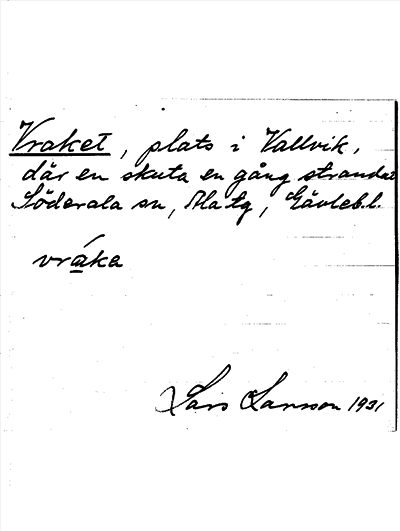 Vraket, plats i Vallvik,
där en skuta en gång strandat
Söderala sn, Ala tg, Gävleb.l.
vráka
Lars Larsson 1931